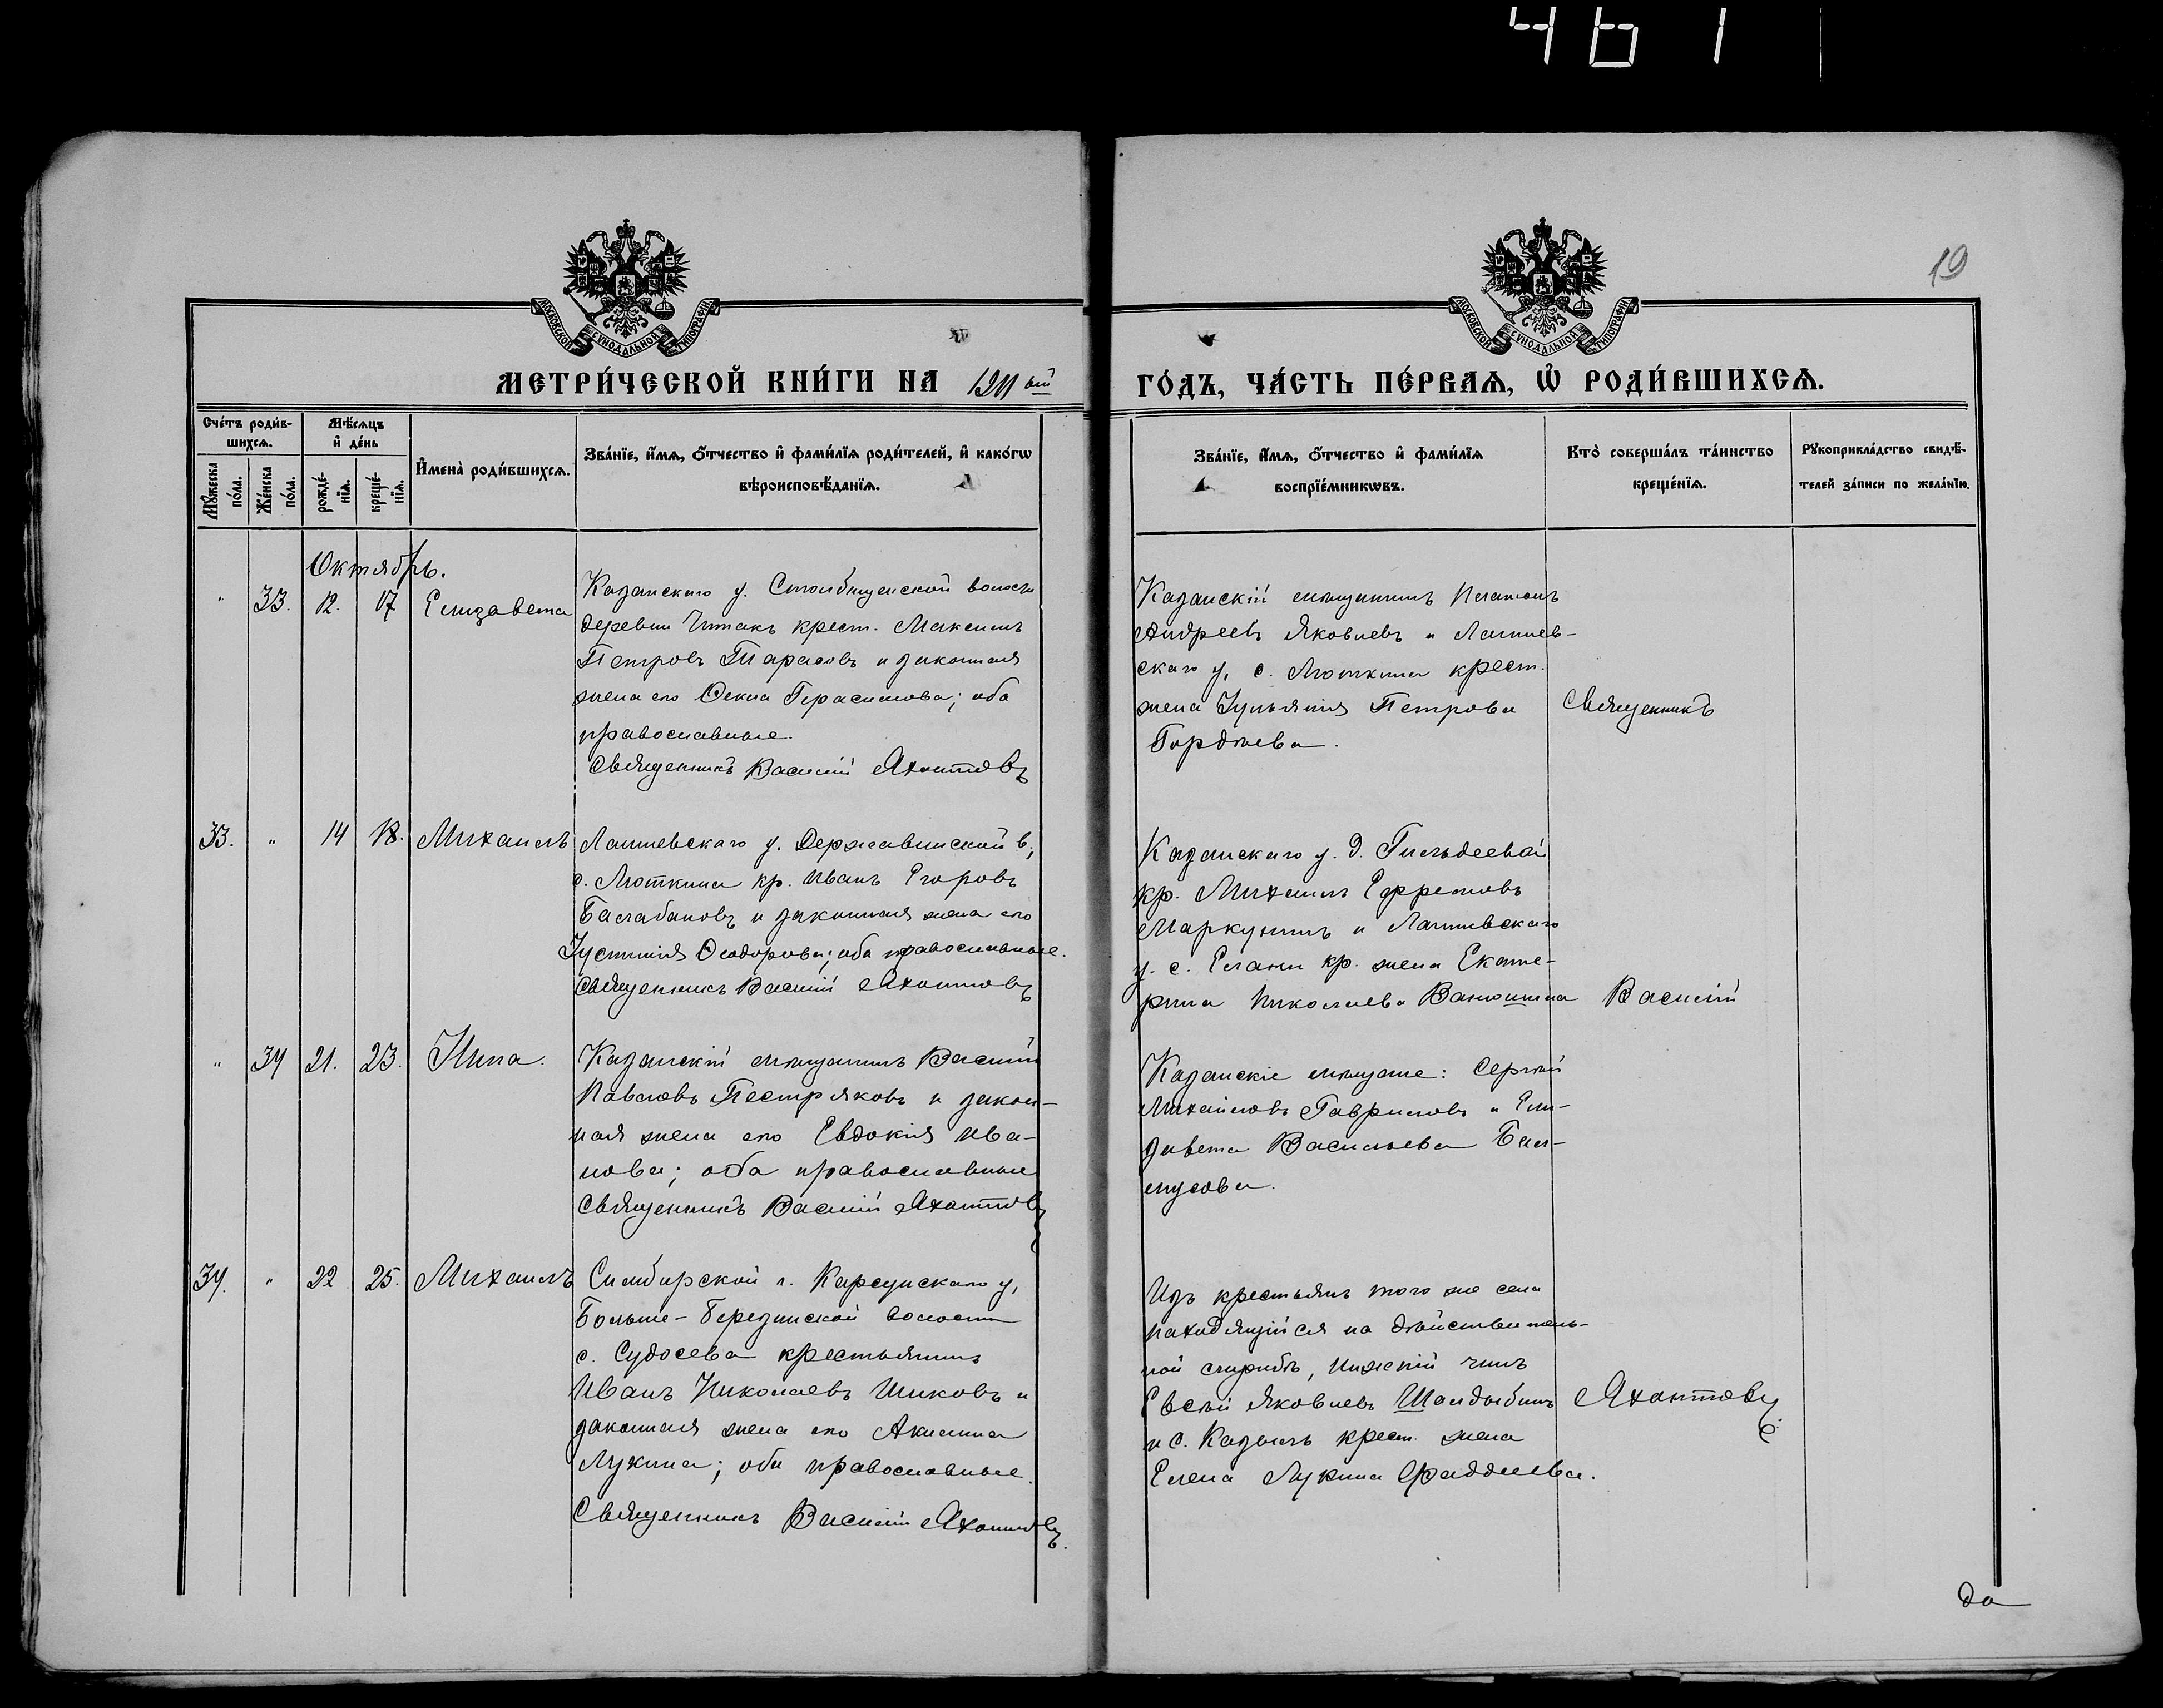 461
19
МОСКОВСКОЙ СѴНОДАЛЬНОЙ ТИПОГРАФІИ
МОСКОВСКОЙ СѴНОДАЛЬНОЙ ТИПОГРАФІИ
МЕТРИ́ЧЕСКОЙ КНИ́ГИ НА 1911 ый ГО́ДЪ, ЧА́СТЬ ПЕ́РВАѦ, Ѽ РОДИ́ВШИХСѦ.
Сче́тъ роди́в-
шихсѧ.
Мѣ́сѧцъ
и҆ де́нь
Мꙋ́жеска по́ла.
Же́нска по́ла.
рожде́-нїѧ.
креще́-нїѧ.
И҆мена̀ роди́вшихсѧ.
Зва́нїе, и҆́мѧ, ѻ҆́тчество и҆ фами́лїѧ роди́телей, и҆ како́гѡ
вѣроисповѣ́данїѧ.
Зва́нїе, и҆́мѧ, ѻ҆́тчество и҆ фами́лїѧ
воспрїе́мникѡвъ.
Кто̀ соверша́лъ та́инство
креще́нїѧ.
Рꙋкоприкла́дство свидѣ́-
телей за́писи по жела́нїю.
Октябрь.
" 33. 12. 17 Елизавета
Казанскаго у. Столбищенской волости
деревни Читакъ крест. Максимъ
Петровъ Тарасовъ и законная
жена его Ѳекла Герасимова; оба
православные.
Священникъ Василій Яхонтовъ
Казанскій мѣщанинъ Платонъ
Андреевъ Яковлевъ и Лаишев-
скаго у. с. Люткина крест.
жена Іуліанія Петрова
Гордѣева.
Священникъ
33. " 14 18. Михаилъ
Лаишевскаго у. Державинской в,
с. Люткина кр. Иванъ Егоровъ
Балабановъ и законная жена его
Іустинія Ѳеодорова; оба православные.
Священникъ Василій Яхонтовъ
Казанскаго у. д. Гильдеевой
кр. Михаилъ Ефремовъ
Маркунинъ и Лаишевскаго
у. с. Елани кр. жена Екате-
рина Николаева Ванюшина
Василій
" 34 21. 23. Нина.
Казанскій мѣщанинъ Василій
Павловъ Пестряковъ и закон-
ная жена его Евдокія Ива-
нова; оба православные
Священникъ Василій Яхонтовъ
Казанскіе мѣщане: Сергѣй
Михайловъ Гавриловъ и Ели-
завета Васильева
34. " 22 25. Михаилъ
Симбирской г. Карсунскаго у,
Больше-Березинской волости
с. Судосева крестьянинъ
Иванъ Николаевъ Шиковъ и
законная жена его Акилина
Лукина; оба православные.
Священникъ Василій Яхонтовъ.
Изъ крестьянъ того же села
находящійся на дѣйствитель-
ной службѣ, нижній чинъ
Евсѣй Яковлевъ Шалдыбинъ
и с. Казыли крест. жена
Елена Лукина Фаддеева.
Яхонтовъ.
да